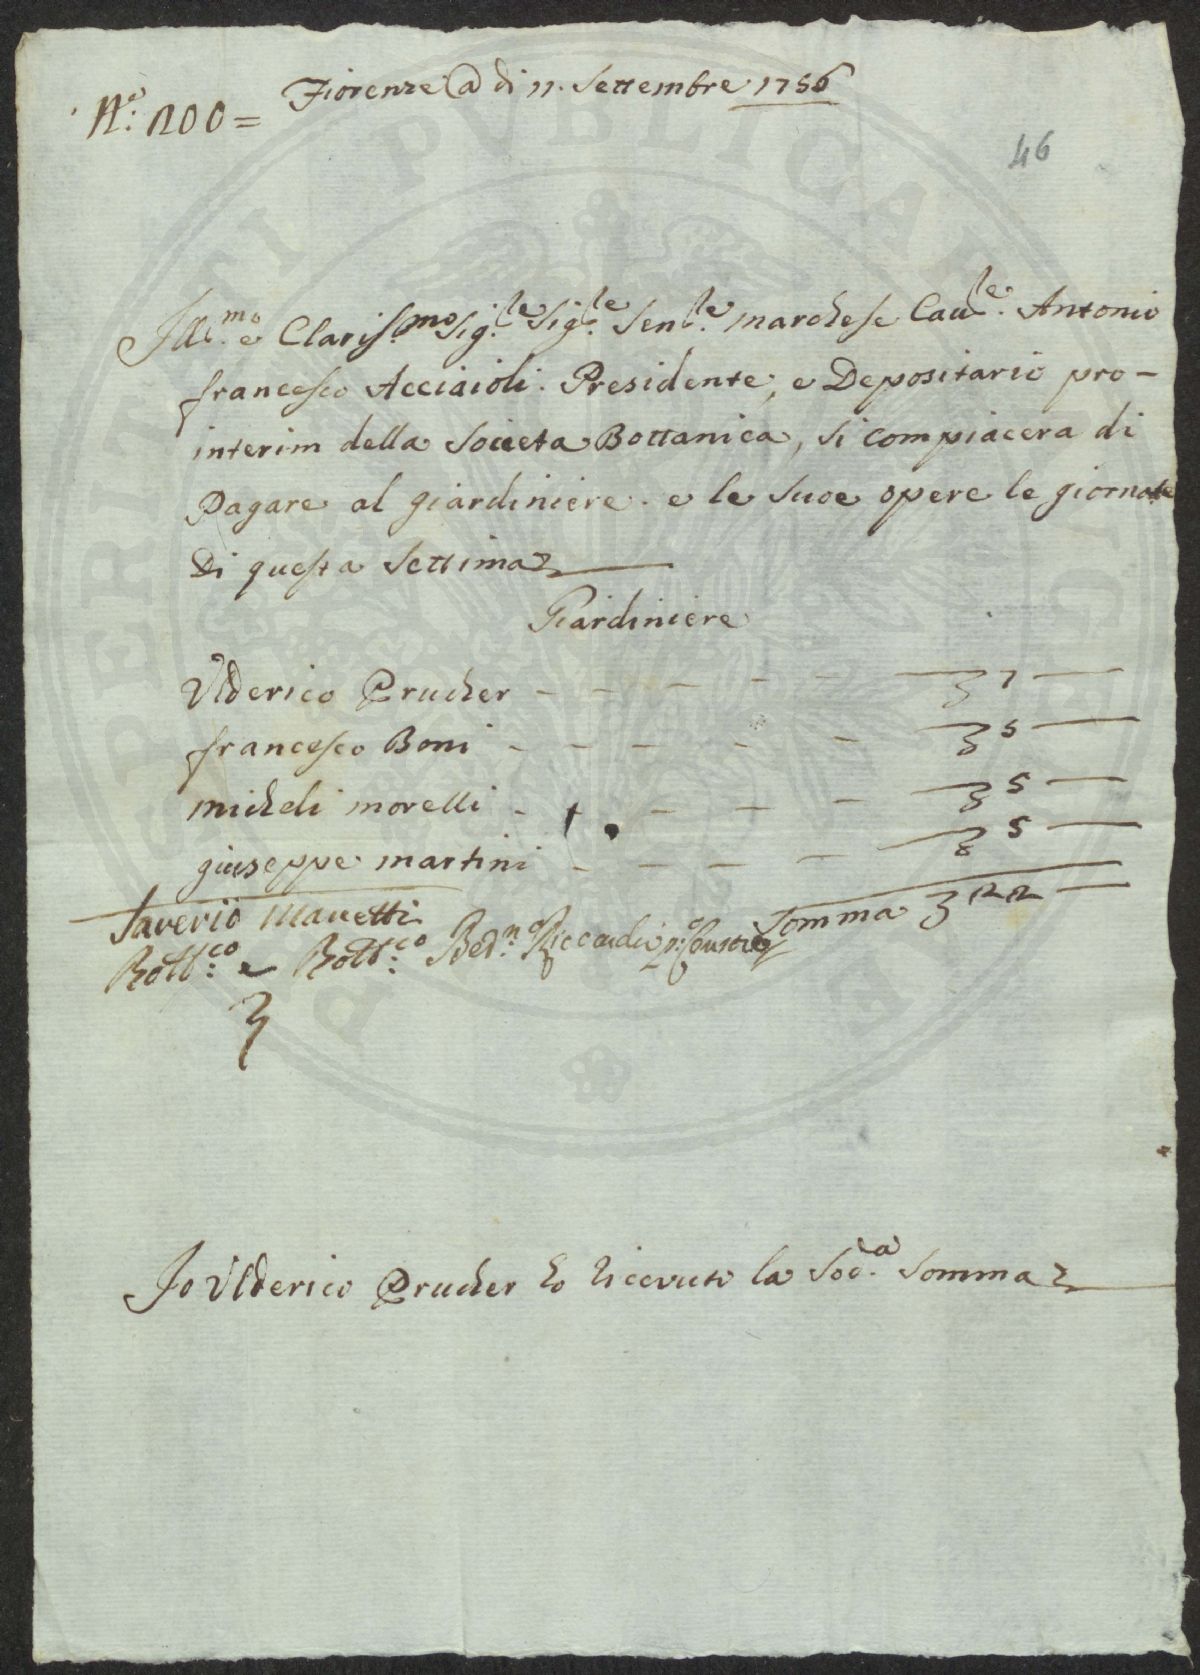 N.o: 200 =
Fiorenze @ di 11. Settembre 1756
46
Ill.mo e Clariss.mo Sig.le Sig.le Sen.le marchese Cau.le Antonio
francesco Acciaioli. Presidente, e Depositario pro-
interim della Socceta Bottanica, si compiacera di
Pagare al giardiniere. e le suoe opere le giornate
Di questa Settima
Giardiniere
Ulderico Prucher - - - - - 7 —
francesco Boni - - - - - 5 —
micheli morelli - - - - - 5 —
giuseppe martini - - - - 5 —
Somma 22 —
Saverio Manetti
Bott.co e Bott.co Bed.no Riccardi
Io Ulderico Prucher ho ricevuto la Sod.a Somma
PERITI PVBLICAE